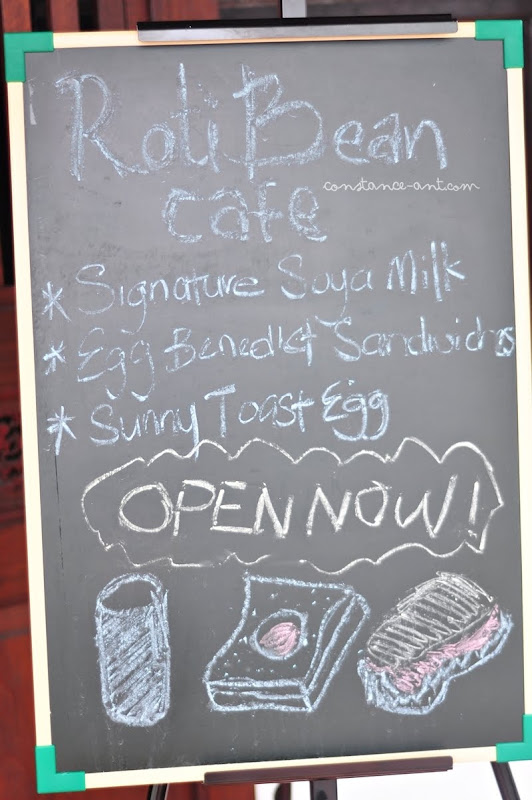 Roti Bean
constance-ant.com
cafe
* Signature Suya Milk
* Egg Benedict Sandwiches
* Sunny Toast Egg
OPEN NOW!